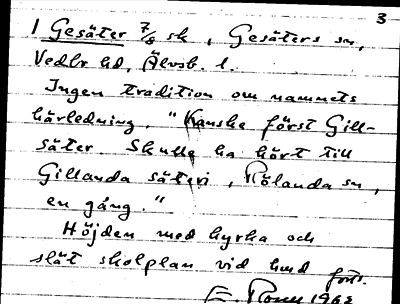 3
1 Gesäter 7/8 sk, Gesäters sn,
Vedbo hd, Älvsb. l.
Ingen tradition om namnets
härledning. "Kanske först Gill-
säter. Skulle ha hört till
Gillanda säteri, Rölanda sn,
en gång."
Höjden med kyrka och
slät skolplan vid hmd forts.
E. 1962